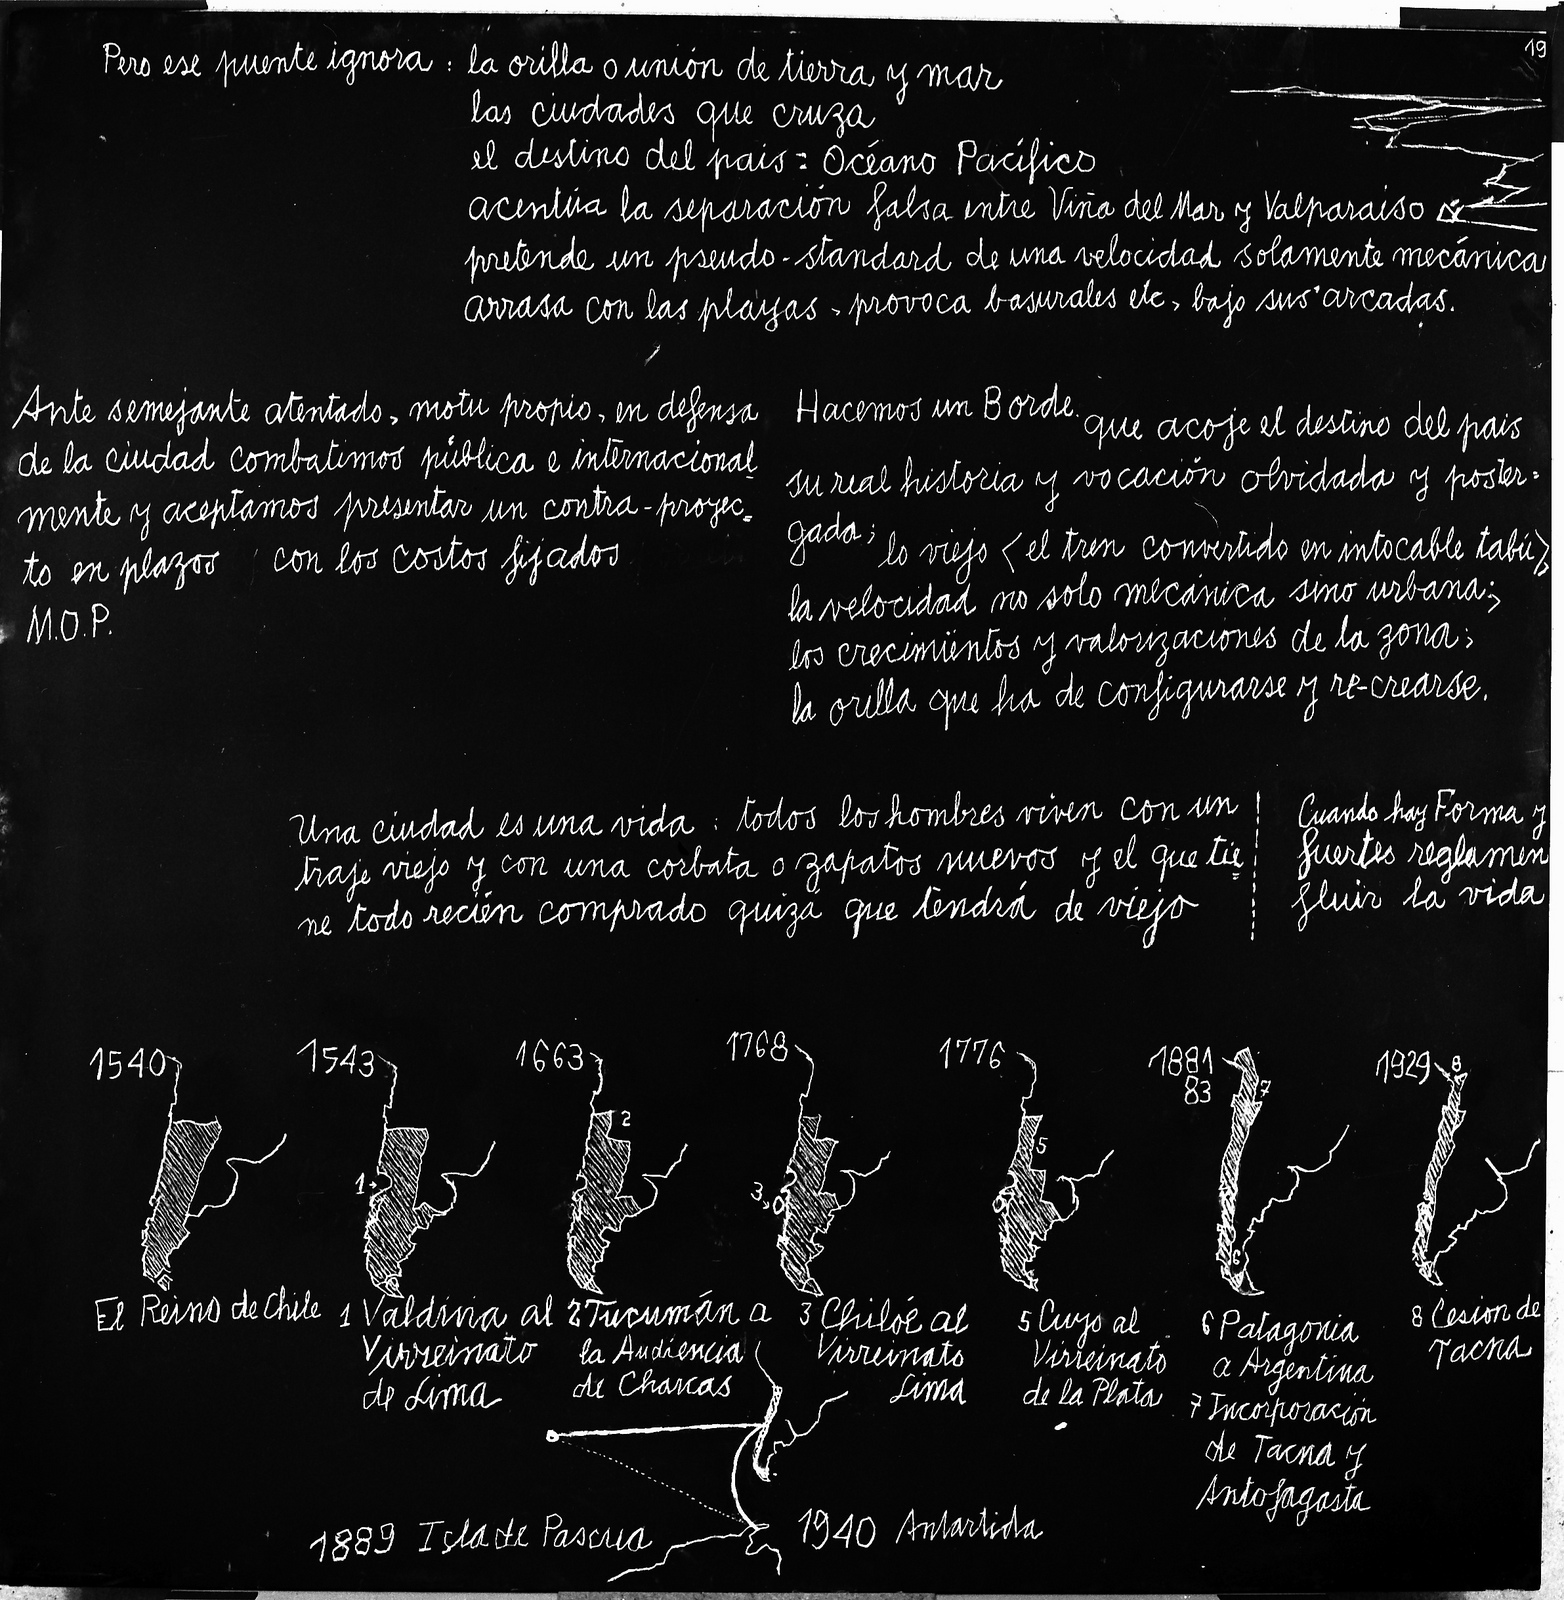 19
Pero ese puente ignora : la orilla o unión de tierra y mar
las ciudades que cruza
el destino del pais : Océano Pacífico
acentúa la separación falsa entre Viña del Mar y Valparaiso
pretende un pseudo-standard de una velocidad solamente mecánica
arrasa con las playas, provoca basurales etc, bajo sus arcadas.
Ante semejante atentado, motu propio, en defensa
de la ciudad combatimos pública e internacional
mente y aceptamos presentar un contra-proyec=
to en plazos con los costos fijados
M.O.P.
Hacemos un Borde que acoje el destino del pais
su real historia y vocación olvidada y poster=
gada; lo viejo <el tren convertido en intocable tabú>
la velocidad no solo mecánica sino urbana;
los crecimientos y valorizaciones de la zona;
la orilla que ha de configurarse y re-crearse.
Una ciudad es una vida : todos los hombres viven con un
traje viejo y con una corbata o zapatos nuevos y el que tie=
ne todo recién comprado quizá que tendrá de viejo
Cuando hay Forma y
fuertes reglamen
fluir la vida
1540 1543 1663 1768 1776 1881 1929
83
8
7
2
5
1
3
6
El Reino de Chile
1 Valdivia al
Virreinato
de Lima
2 Tucumán a
la Audiencia
de Charcas
3 Chiloé al
Virreinato
Lima
5 Cuyo al
Virreinato
de la Plata
6 Patagonia
a Argentina
7 Incorporación
de Tacna y
Antofagasta
8 Cesion de
Tacna
1889 Isla de Pascua
1940 Antartida